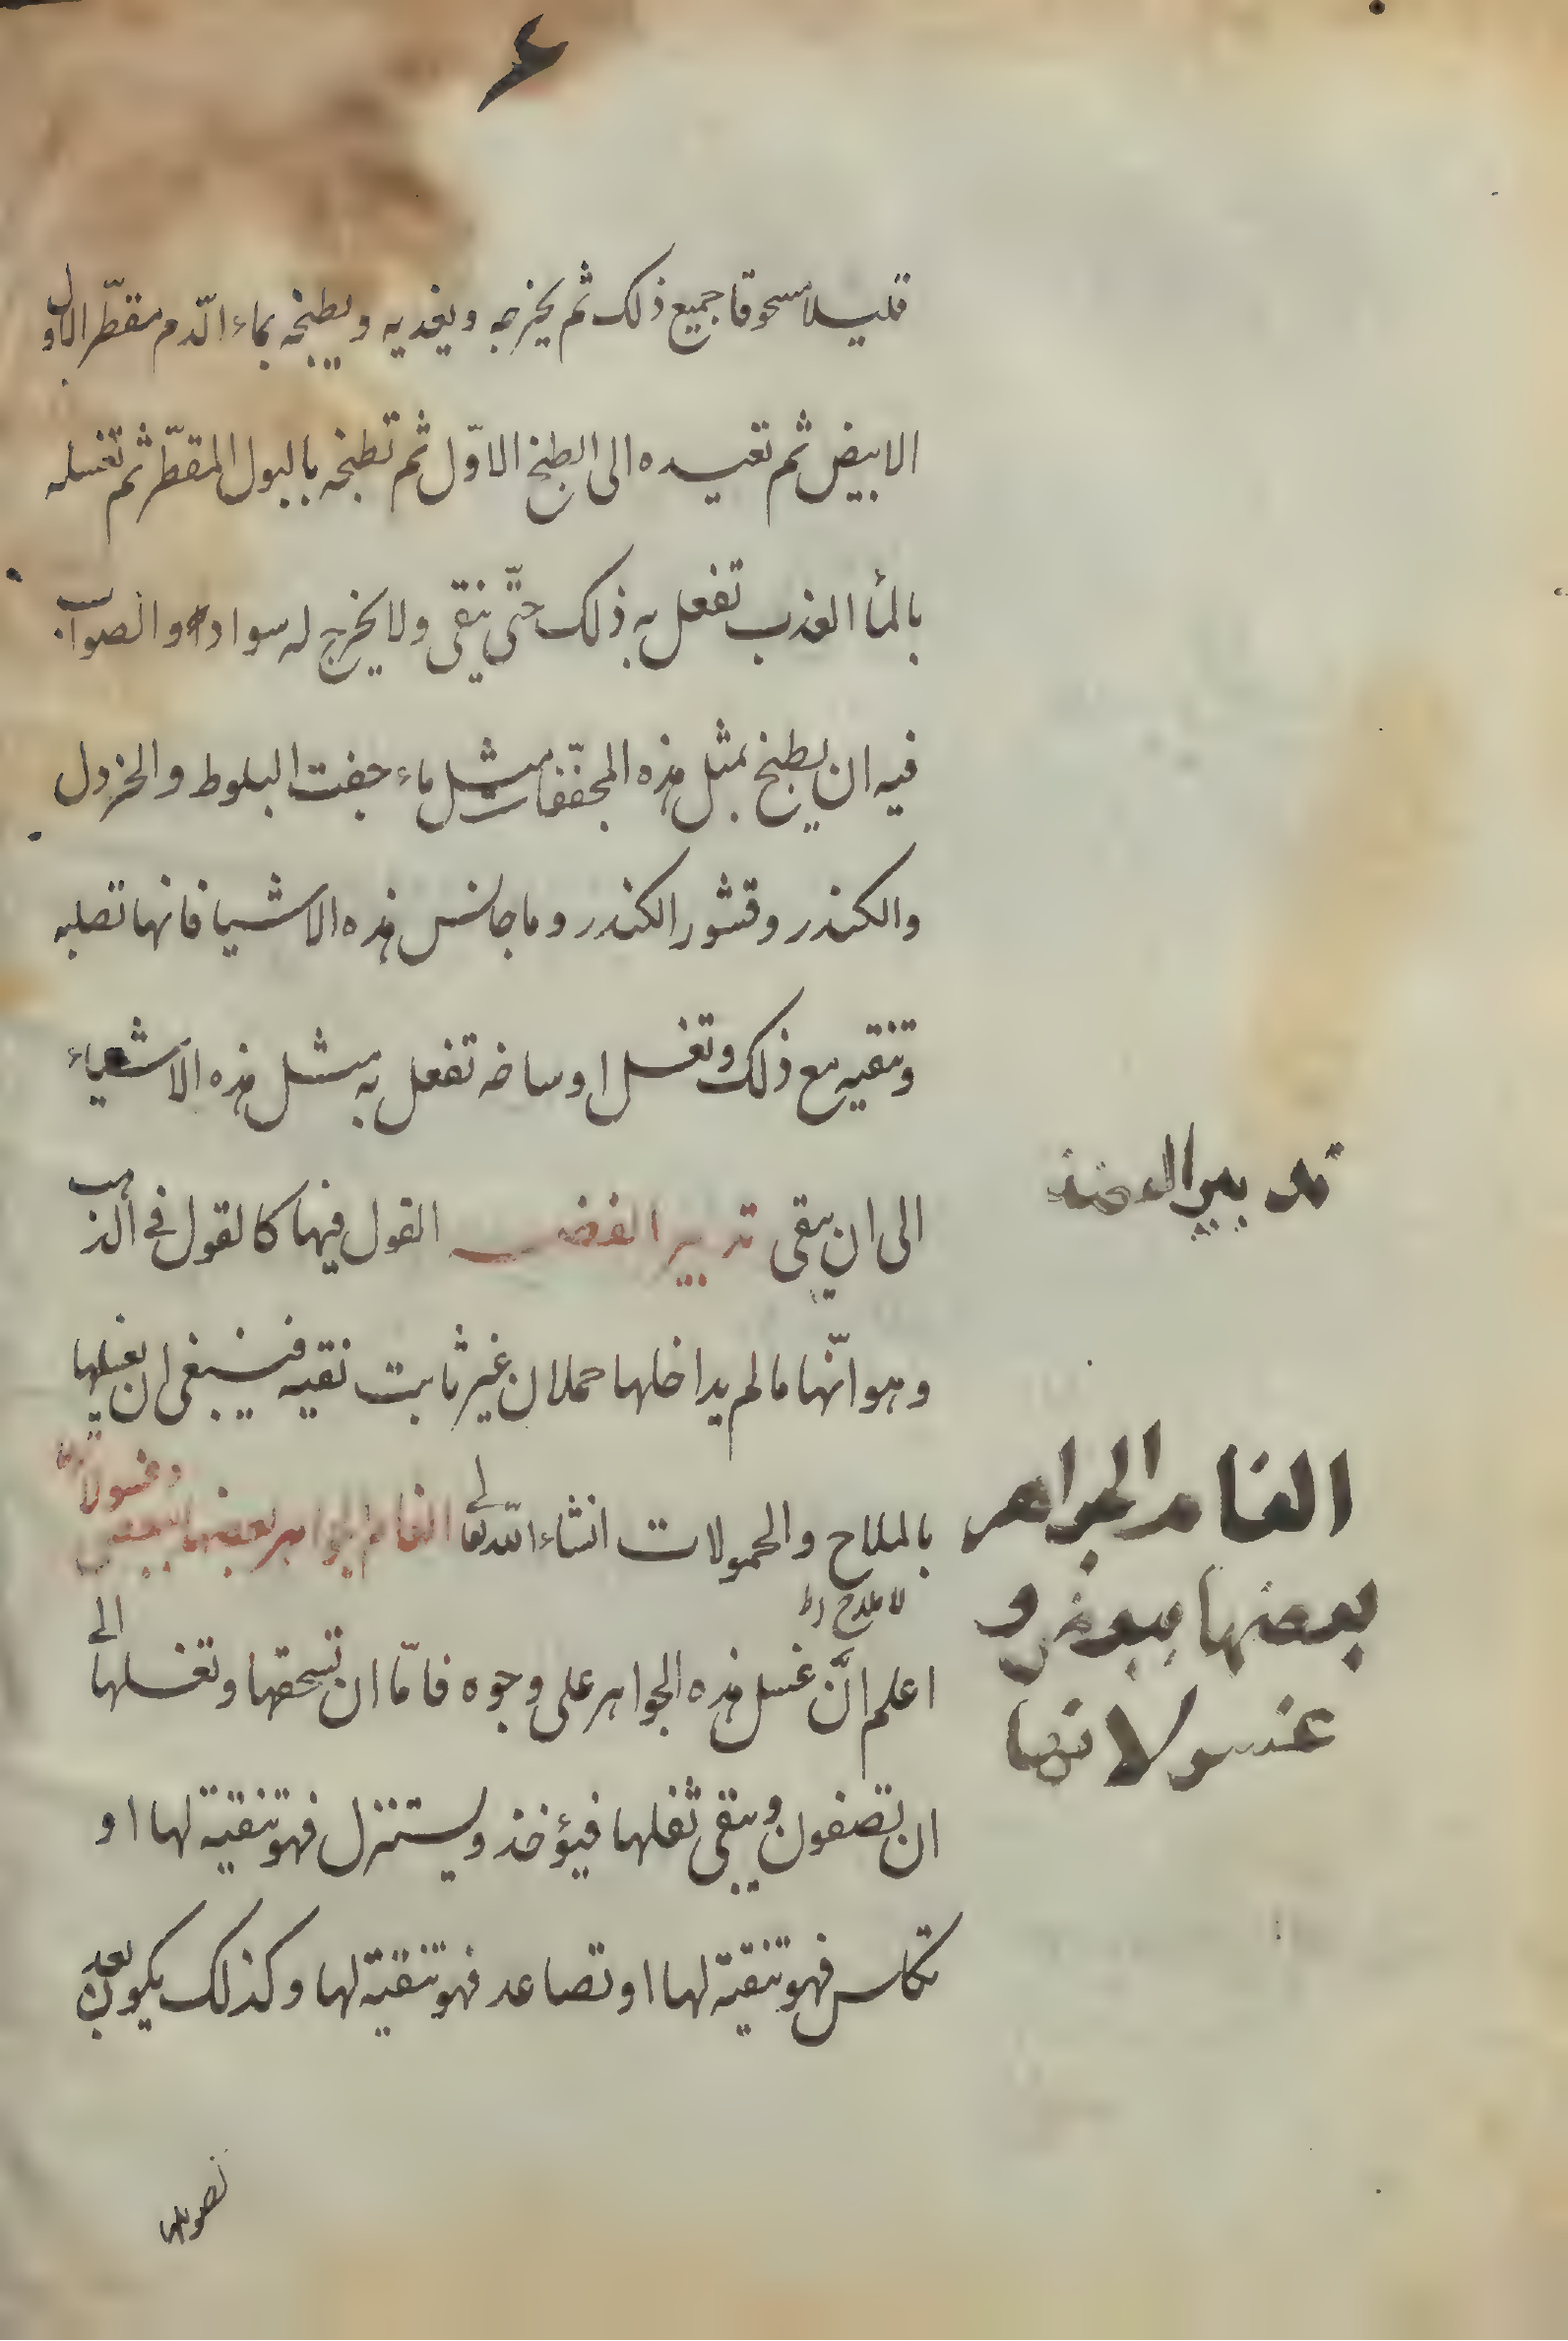 ۶
قليلا مسحوقا جميع ذلك ثم يخرجه ويغديه ويطبخه بماء الدّم مقطّر الاول
الابيض ثم تعيده الى الطبخ الاوّل ثم تطبخه بالبول المقطّر ثم تغسله
بالمأ العذب تفعل به ذلك حتّى ينقى ولا يخرج له سواد والصواب
فيه ان يطبخ بمثل هذه المجفّفات مثل ماء جفت البلوط والخردل
والكندر وقشور الكندر وما جانس هذه الاشيا فانها تصلبه
وتنقيه مع ذلك وتغسل اوساخه تفعل به مثل هذه الاشياء
الى ان يبقى تدبير الفضه القول فيها كالقول في الذهب
وهو انّها مالم يداخلها حملان غير ثابت نقيه فينبغى ان يغسلها
بالملاح والحمولات انشاء اللّه تعالى الغام الجواهر بعضها ببعض وغسولاتها
اعلم انّ غسل هذه الجواهر على وجوه فامّا ان تسحقها وتغسلها الى
ان تصفون ويبقى ثفلها فيؤخذ ويستنزل فهو تنقية لها او
تكلس فهو تنقية لها او تصاعد فهو تنقية لها وكذلك يكون بعد
تدبير الفضة
الغام الجواهر
بعضها ببعض و
غسولاتها